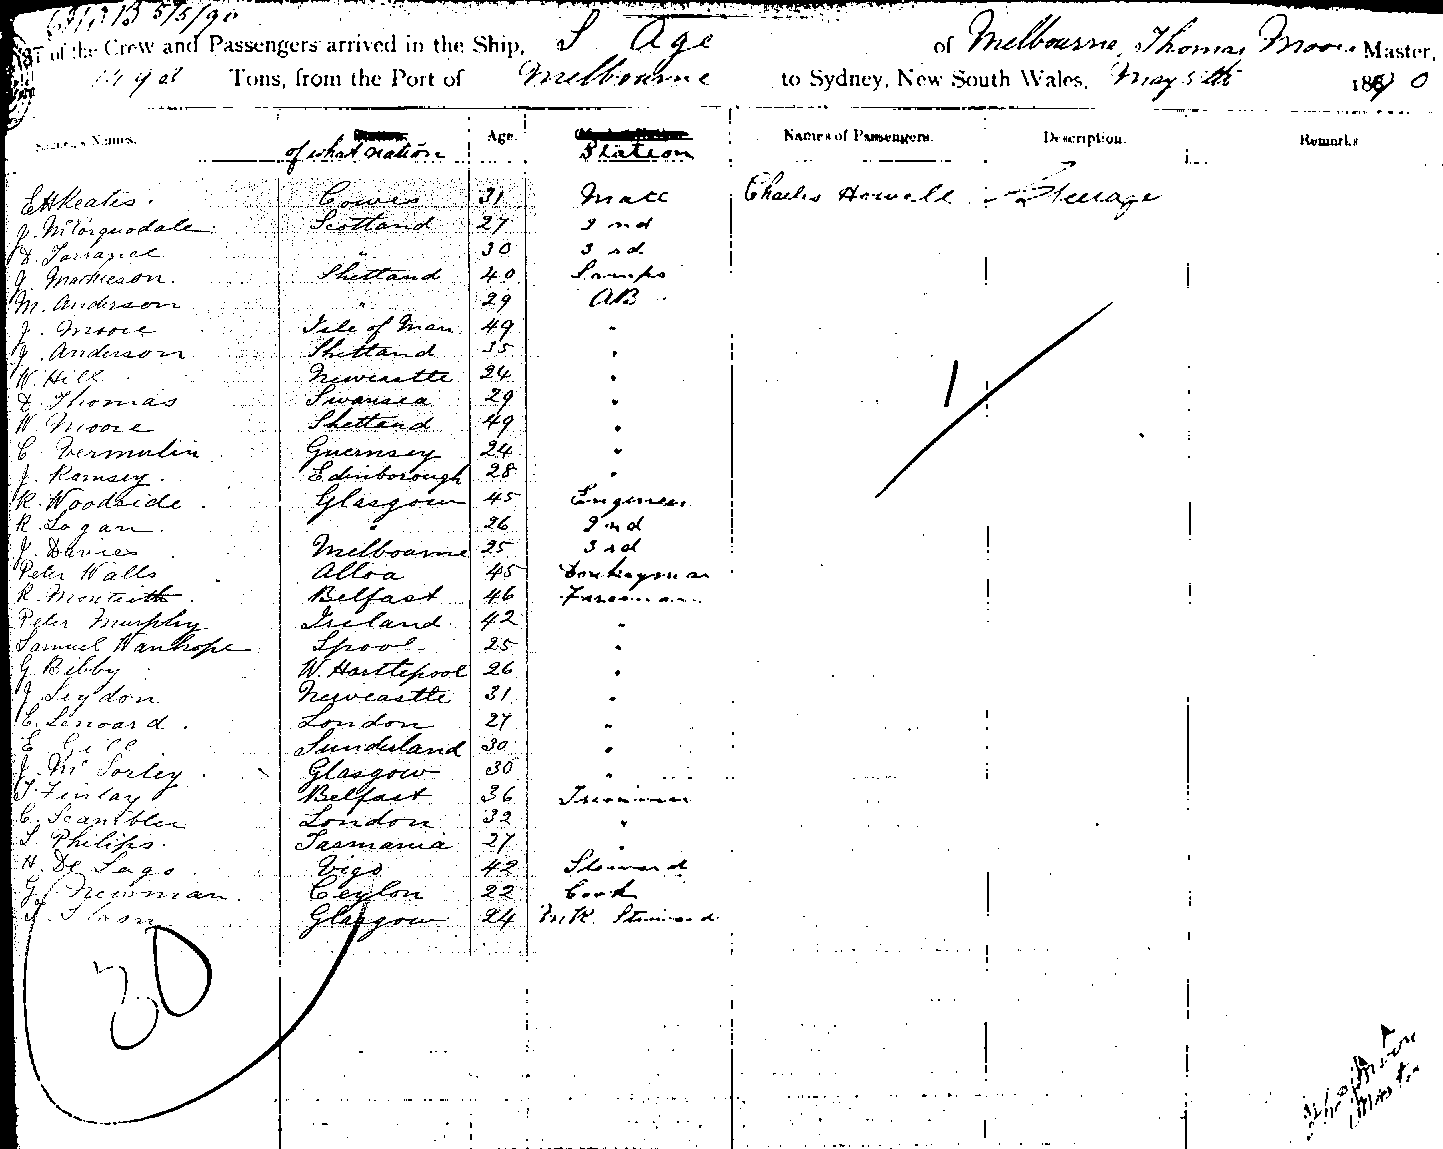 5/5/90
of the Crew and Passengers arrived in the Ship, S Age of Melbourne, Thomas Moore Master,
Tons, from the Port of Melbourne to Sydney, New South Wales, May 5th 1890
Names. of what nation Age. Station Names of Passengers. Description. Remarks
E H Keates. Cowes 31 Mate Charles Howell Steerage
J. McCorquodale Scotland 27 2nd
D. " 30 3rd
Shetland 40 Lamps
M. Anderson " 29 AB
J. Moore Isle of Man 49 "
J. Anderson Shetland 35 "
W. Hill Newcastle 24 "
D Thomas Swansea 29 "
W. Moore Shetland 49 "
C Vermulin Guernsey 24 "
J. Ramsey. Edinborough 28 "
R. Woodside Glasgow 45 Engineer
R. Logan " 26 2nd
J. Davies Melbourne 25 3rd
Peter Walls Alloa 45 Donkeyman
R. Monteith Belfast 46 Fireman
Peter Murphy Ireland 42 "
Samuel Wanhope Lpool 25 "
G Bibby W. Hartlepool 26 "
J Leydon Newcastle 31 "
E. Lenoard London 27 "
E Gill Sunderland 30 "
J. McSorley Glasgow 30 "
T Finlay Belfast 36 Trimmer
C. Scantbler London 32 "
S Philips. Tasmania 27 "
H. De Lago Vigo 42 Steward
G. Newman. Ceylon 22 Cook
Glasgow 24 Steward
1
30
Moore
Master